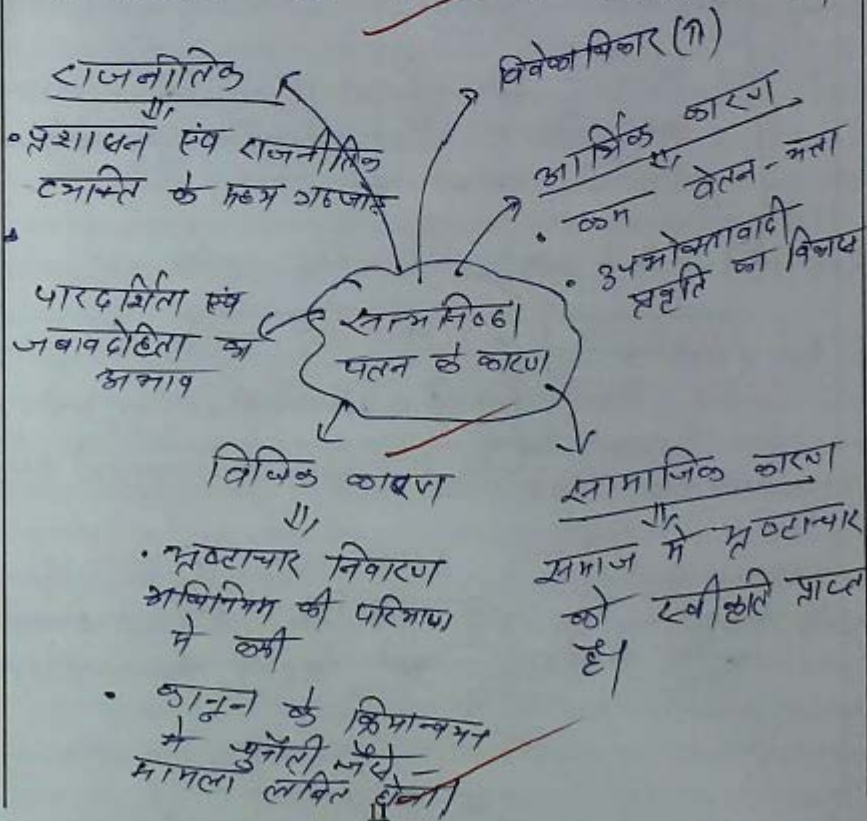 राजनीतिक
• प्रशासन एंव राजनीतिक
व्यक्ति के मध्य गठजोड़
विवेकाधिकार (↑)
आर्थिक कारण
• कम वेतन - भत्ता
• उपभोक्तावादी
प्रवृति का विकास
पारदर्शिता एंव
जबावदेहिता का
अभाव
सत्यनिष्ठा
पतन के कारण
विधिक कारण
• भ्रष्टाचार निवारण
अधिनियम की परिभाषा
मे कमी
• कानून के क्रियान्वयन
मे चुनौती जैसे -
मामला लंबित होना।
सामाजिक कारण
समाज मे भ्रष्टाचार
को स्वीकृति प्राप्त
है।